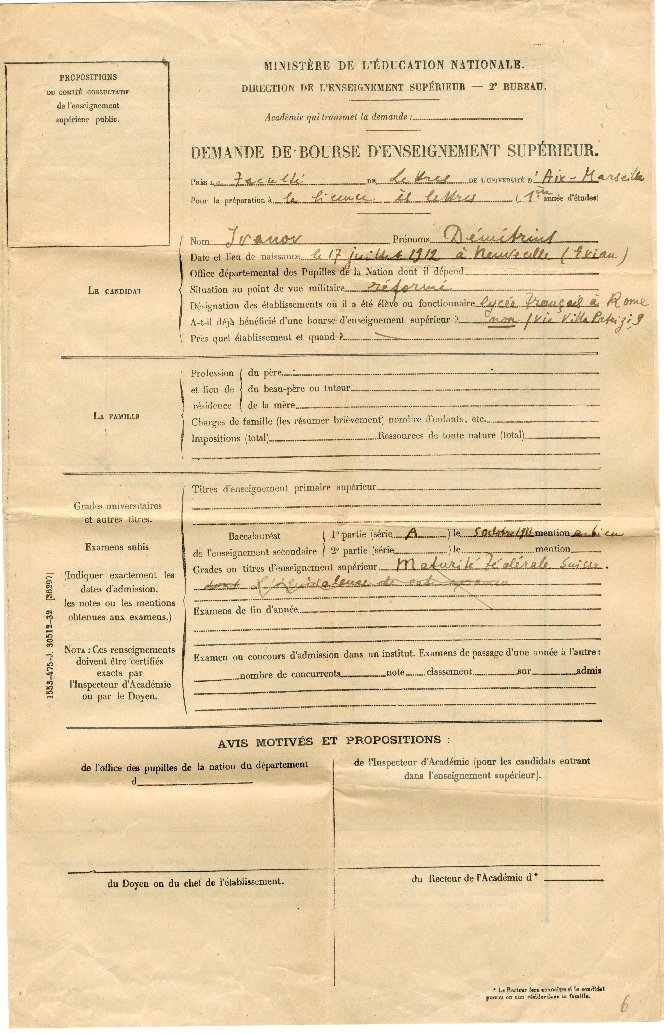 PROPOSITIONS
DU COMITÉ CONSULTATIF
de l'enseignement
supérieur public.
MINISTÈRE DE L'ÉDUCATION NATIONALE.
DIRECTION DE L'ENSEIGNEMENT SUPÉRIEUR — 2e BUREAU.
Académie qui transmet la demande :
DEMANDE DE BOURSE D'ENSEIGNEMENT SUPÉRIEUR.
PRÈS la Faculté DE Lettres DE L'UNIVERSITÉ D'Aix-Marseille
Pour la préparation à la licence ès lettres (1ère année d'études)
LE CANDIDAT
Nom Ivanov Prénoms Démétrius
Date et lieu de naissance le 17 juillet 1912 à Neuvecelle (Evian)
Office départemental des Pupilles de la Nation dont il dépend
Situation au point de vue militaire réformé
Désignation des établissements où il a été élève ou fonctionnaire lycée français à Rome
A-t-il déjà bénéficié d'une bourse d'enseignement supérieur à non (via Villa Patrizi 9
Près quel établissement et quand à
LA FAMILLE
Profession du père
et lieu de du beau-père ou tuteur
résidence de la mère
Charges de famille (les résumer brièvement) nombre d'enfants, etc.
Impositions (total) Ressources de toute nature (total)
Grades universitaires
et autres titres.
Examens subis
(Indiquer exactement les
dates d'admission,
les notes ou les mentions
obtenues aux examens.)
NOTA : Ces renseignements
doivent être certifiés
exacts par
l'Inspecteur d'Académie
ou par le Doyen.
1553-475-J. 30512-32 [38297]
Titres d'enseignement primaire supérieur
Baccalauréat 1e partie (série A ) le 5 octobre mention bien
de l'enseignement secondaire 2e partie (série ) le mention
Grades ou titres d'enseignement supérieur Maturité Fédérale Suisse.
dont l'équivalence de cet examen
Examens de fin d'année
Examen ou concours d'admission dans un institut. Examens de passage d'une année à l'autre :
nombre de concurrents note classement sur admis
AVIS MOTIVÉS ET PROPOSITIONS :
de l'office des pupilles de la nation du département
d
de l'Inspecteur d'Académie (pour les candidats entrant
dans l'enseignement supérieur).
du Doyen ou du chef de l'établissement.
du Recteur de l'Académie d *
* Le Recteur fera connaître si le candidat
pourra ou non résider dans sa famille.
6